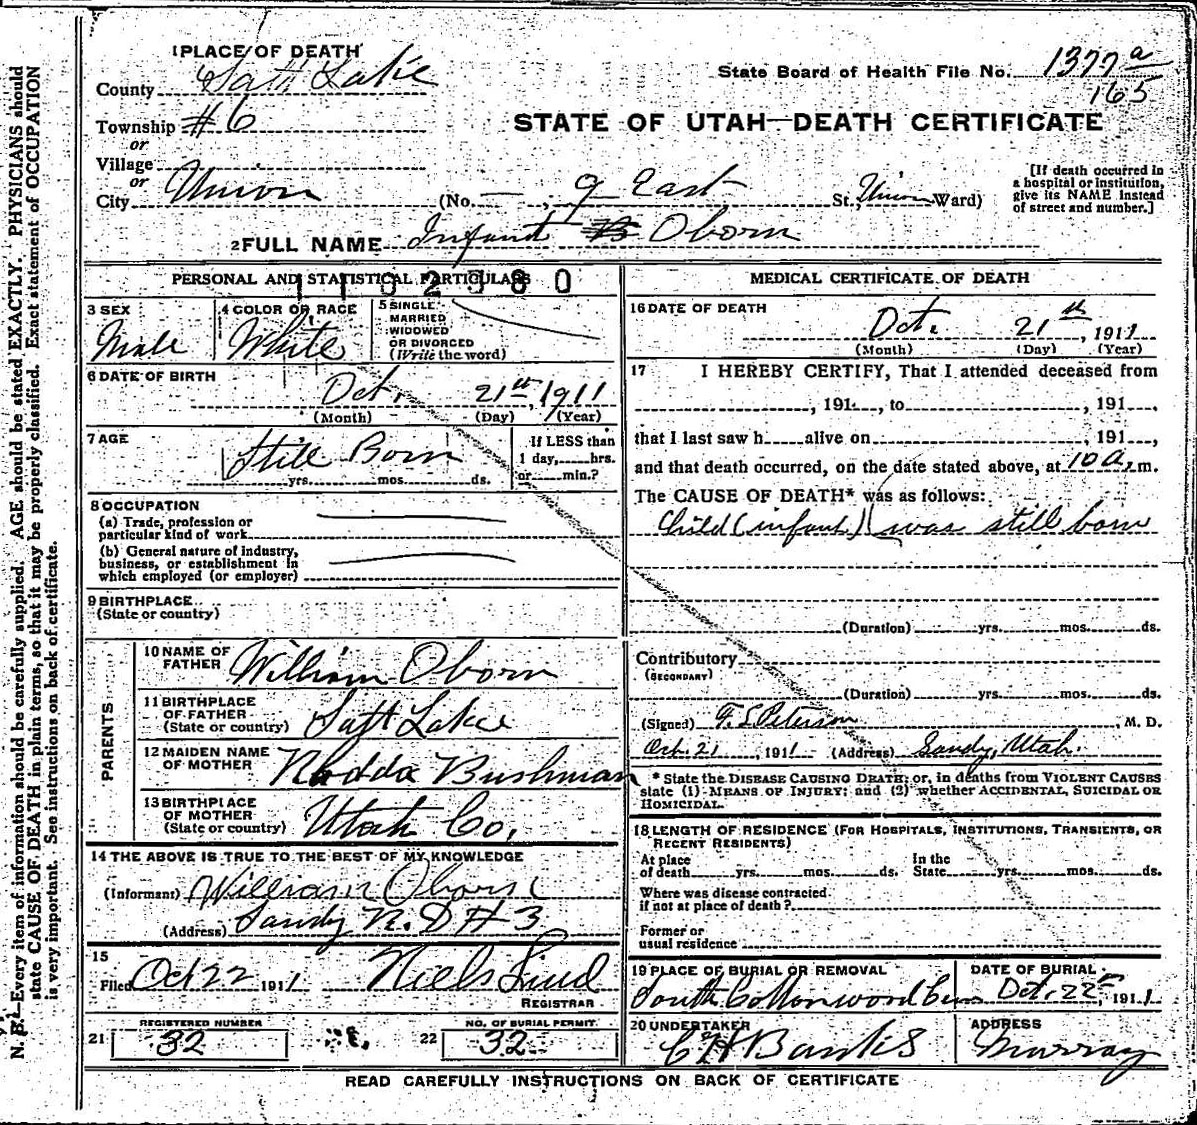 1 PLACE OF DEATH
County Salt Lake
State Board of Health File No. 1377 a
165
Township #6
or
STATE OF UTAH—DEATH CERTIFICATE
Village
or
City Union (No. — , 9 East St., Union Ward)
[If death occurred in a hospital or institution, give its NAME instead of street and number.]
2 FULL NAME Infant Oborn
PERSONAL AND STATISTICAL PARTICULARS
3 SEX
Male
4 COLOR OR RACE
White
5 SINGLE
MARRIED
WIDOWED
OR DIVORCED
(Write the word)
6 DATE OF BIRTH
Oct. 21th, 1911
(Month) (Day) (Year)
7 AGE
Still Born
yrs. mos. ds.
If LESS than
1 day, hrs.
or min.?
8 OCCUPATION
(a) Trade, profession or
particular kind of work
(b) General nature of industry,
business, or establishment in
which employed (or employer)
9 BIRTHPLACE
(State or country)
PARENTS
10 NAME OF
FATHER William Oborn
11 BIRTHPLACE
OF FATHER
(State or country) Salt Lake
12 MAIDEN NAME
OF MOTHER Rhodda Bushman
13 BIRTHPLACE
OF MOTHER
(State or country) Utah Co.
14 THE ABOVE IS TRUE TO THE BEST OF MY KNOWLEDGE
(Informant) William Oborn
(Address) Sandy R.D #3
15
Filed Oct 22 1911 Niels Lind
REGISTRAR
21 REGISTERED NUMBER
32
22 NO. OF BURIAL PERMIT
32
MEDICAL CERTIFICATE OF DEATH
16 DATE OF DEATH
Oct. 21th, 1911
(Month) (Day) (Year)
17 I HEREBY CERTIFY, That I attended deceased from
, 191 , to , 191 ,
that I last saw h alive on , 191 ,
and that death occurred, on the date stated above, at 10 a.m.
The CAUSE OF DEATH* was as follows:
Child (infant) was still born
(Duration) yrs. mos. ds.
Contributory
(SECONDARY)
(Duration) yrs. mos. ds.
(Signed) F. S. Peterson M. D.
Oct. 21, 1911 (Address) Sandy, Utah.
* State the DISEASE CAUSING DEATH; or, in deaths from VIOLENT CAUSES
state (1) MEANS OF INJURY; and (2) whether ACCIDENTAL, SUICIDAL OR
HOMICIDAL.
18 LENGTH OF RESIDENCE (FOR HOSPITALS, INSTITUTIONS, TRANSIENTS, OR
RECENT RESIDENTS)
At place
of death yrs. mos. ds.
In the
State yrs. mos. ds.
Where was disease contracted
if not at place of death?
Former or
usual residence
19 PLACE OF BURIAL OR REMOVAL
South Cottonwood Cem
DATE OF BURIAL
Oct. 22, 1911
20 UNDERTAKER
Banks
ADDRESS
Murray
READ CAREFULLY INSTRUCTIONS ON BACK OF CERTIFICATE
N. B.—Every item of information should be carefully supplied. AGE should be stated EXACTLY. PHYSICIANS should
state CAUSE OF DEATH in plain terms, so that it may be properly classified. Exact statement of OCCUPATION
is very important. See instructions on back of certificate.